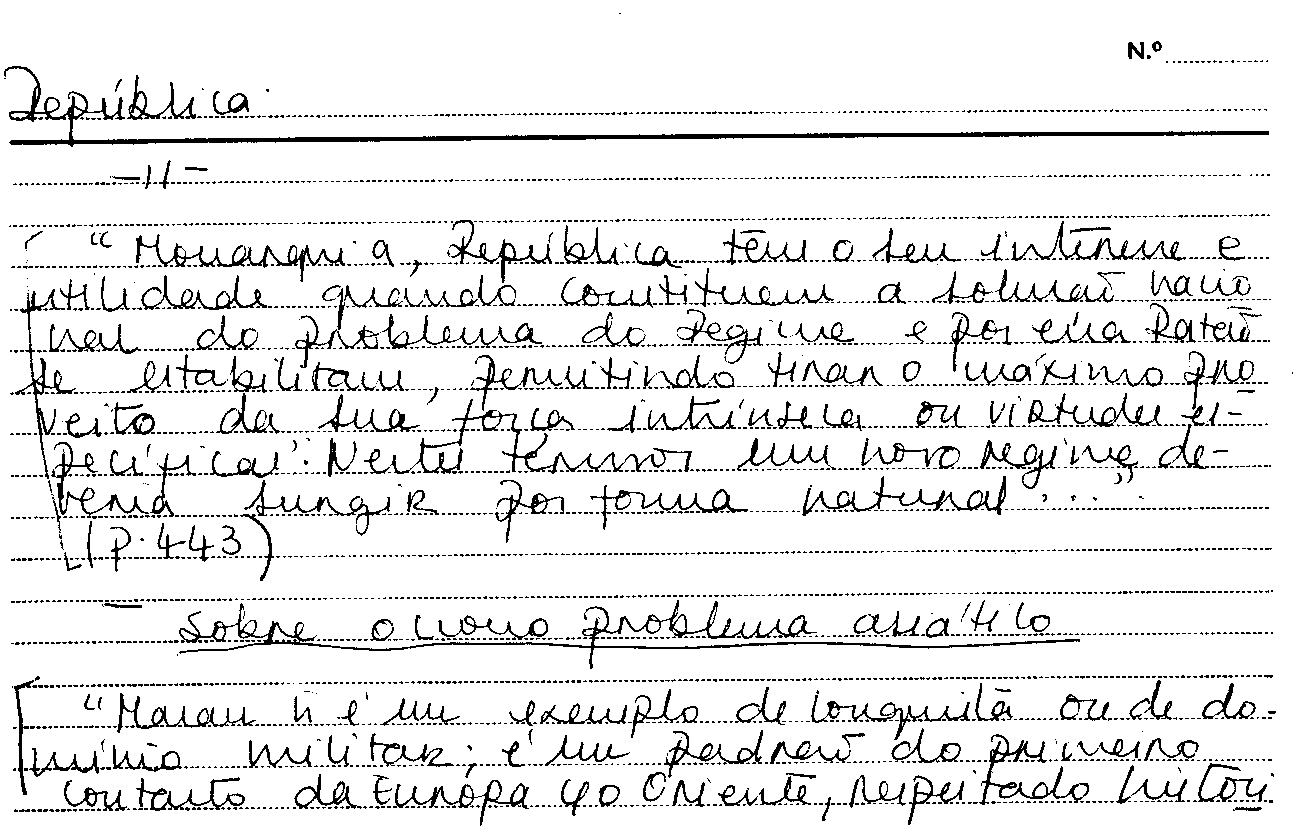 N.º
República
-11-
"Monarquia, República têm o seu interesse e
utilidade quando constituem a solução nacio
nal do problema do Regime e por essa Razão
se estabilizam, permitindo tirar o máximo pro
veito da sua força intrínseca ou virtudes es-
pecíficas". Nestes termos um novo regime de-
veria surgir por forma natural..."
(P. 443)
- Sobre o novo problema asiático
"Macau ñ é um exemplo de conquista ou de do-
mínio militar; é um padrão do primeiro
contacto da Europa c/o Oriente, respeitado históri